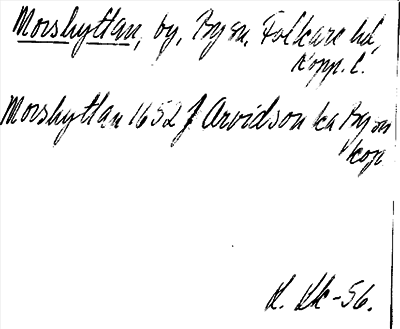 Morshyttan, by, By sn, Folkare hd,
Kopp. l.
Morshyttan 1652 J Arvidson ka By sn
kop